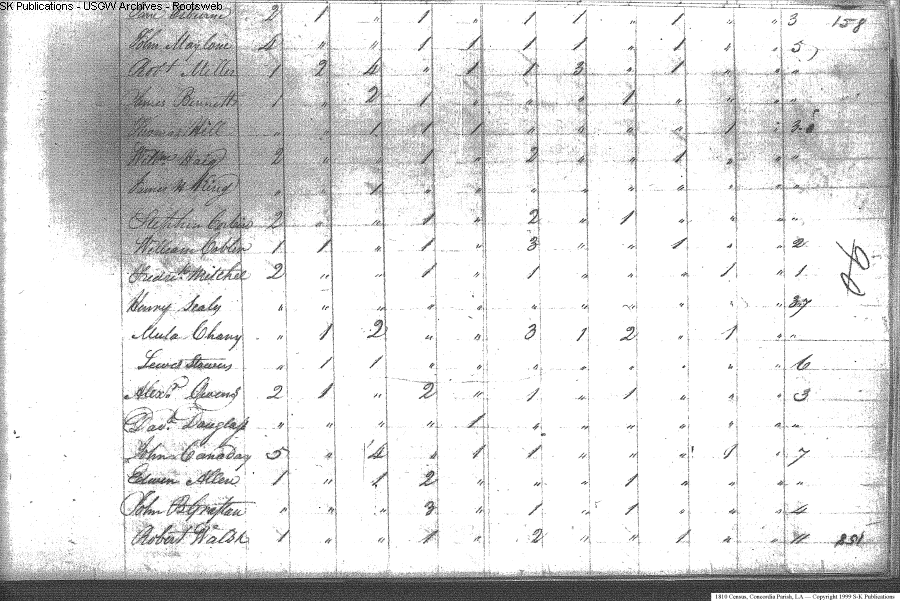 SK Publications - USGW Archives - Rootsweb
Osburne 2 1 " " 1 " 1 1 " 1 " " 3 158
John 4 " " 1 1 1 1 " 1 " " 5
Robt Miller 1 2 4 " 1 1 3 " 1 " " "
James Bennett 1 " 2 1 " " " 1 " " " "
Thomas Hill " " 1 1 1 " " " " 1 " 3
Willm 2 " " 1 " 2 " " 1 " " "
James King " " 1 " " " " " " " " "
Stephen 2 " " 1 " 2 " 1 " " " "
William Coblin 1 1 " 1 " 3 " " 1 " " 2
Mitchel 2 " " 1 " 1 " " " 1 " 1
Henry Sealy " " " " " " " " " " " 37
Mula Chany " 1 2 " " 3 1 2 " 1 " "
Lewis " 1 1 " " " " " " " " 6
Alexr Owens 2 1 " 2 " 1 " 1 " " " 3
Davd Douglass " " " " 1 " " " " " " "
John Canaday 5 " 4 " 1 1 " " " 1 " 7
Edwin Allen 1 " 1 2 " " " 1 " " " "
John B Grafton " " " 3 " 1 " 1 " " " 4
Robert Walsh 1 " " 1 " 2 " " 1 " " 11
1810 Census, Concordia Parish, LA — Copyright 1999 S-K Publications